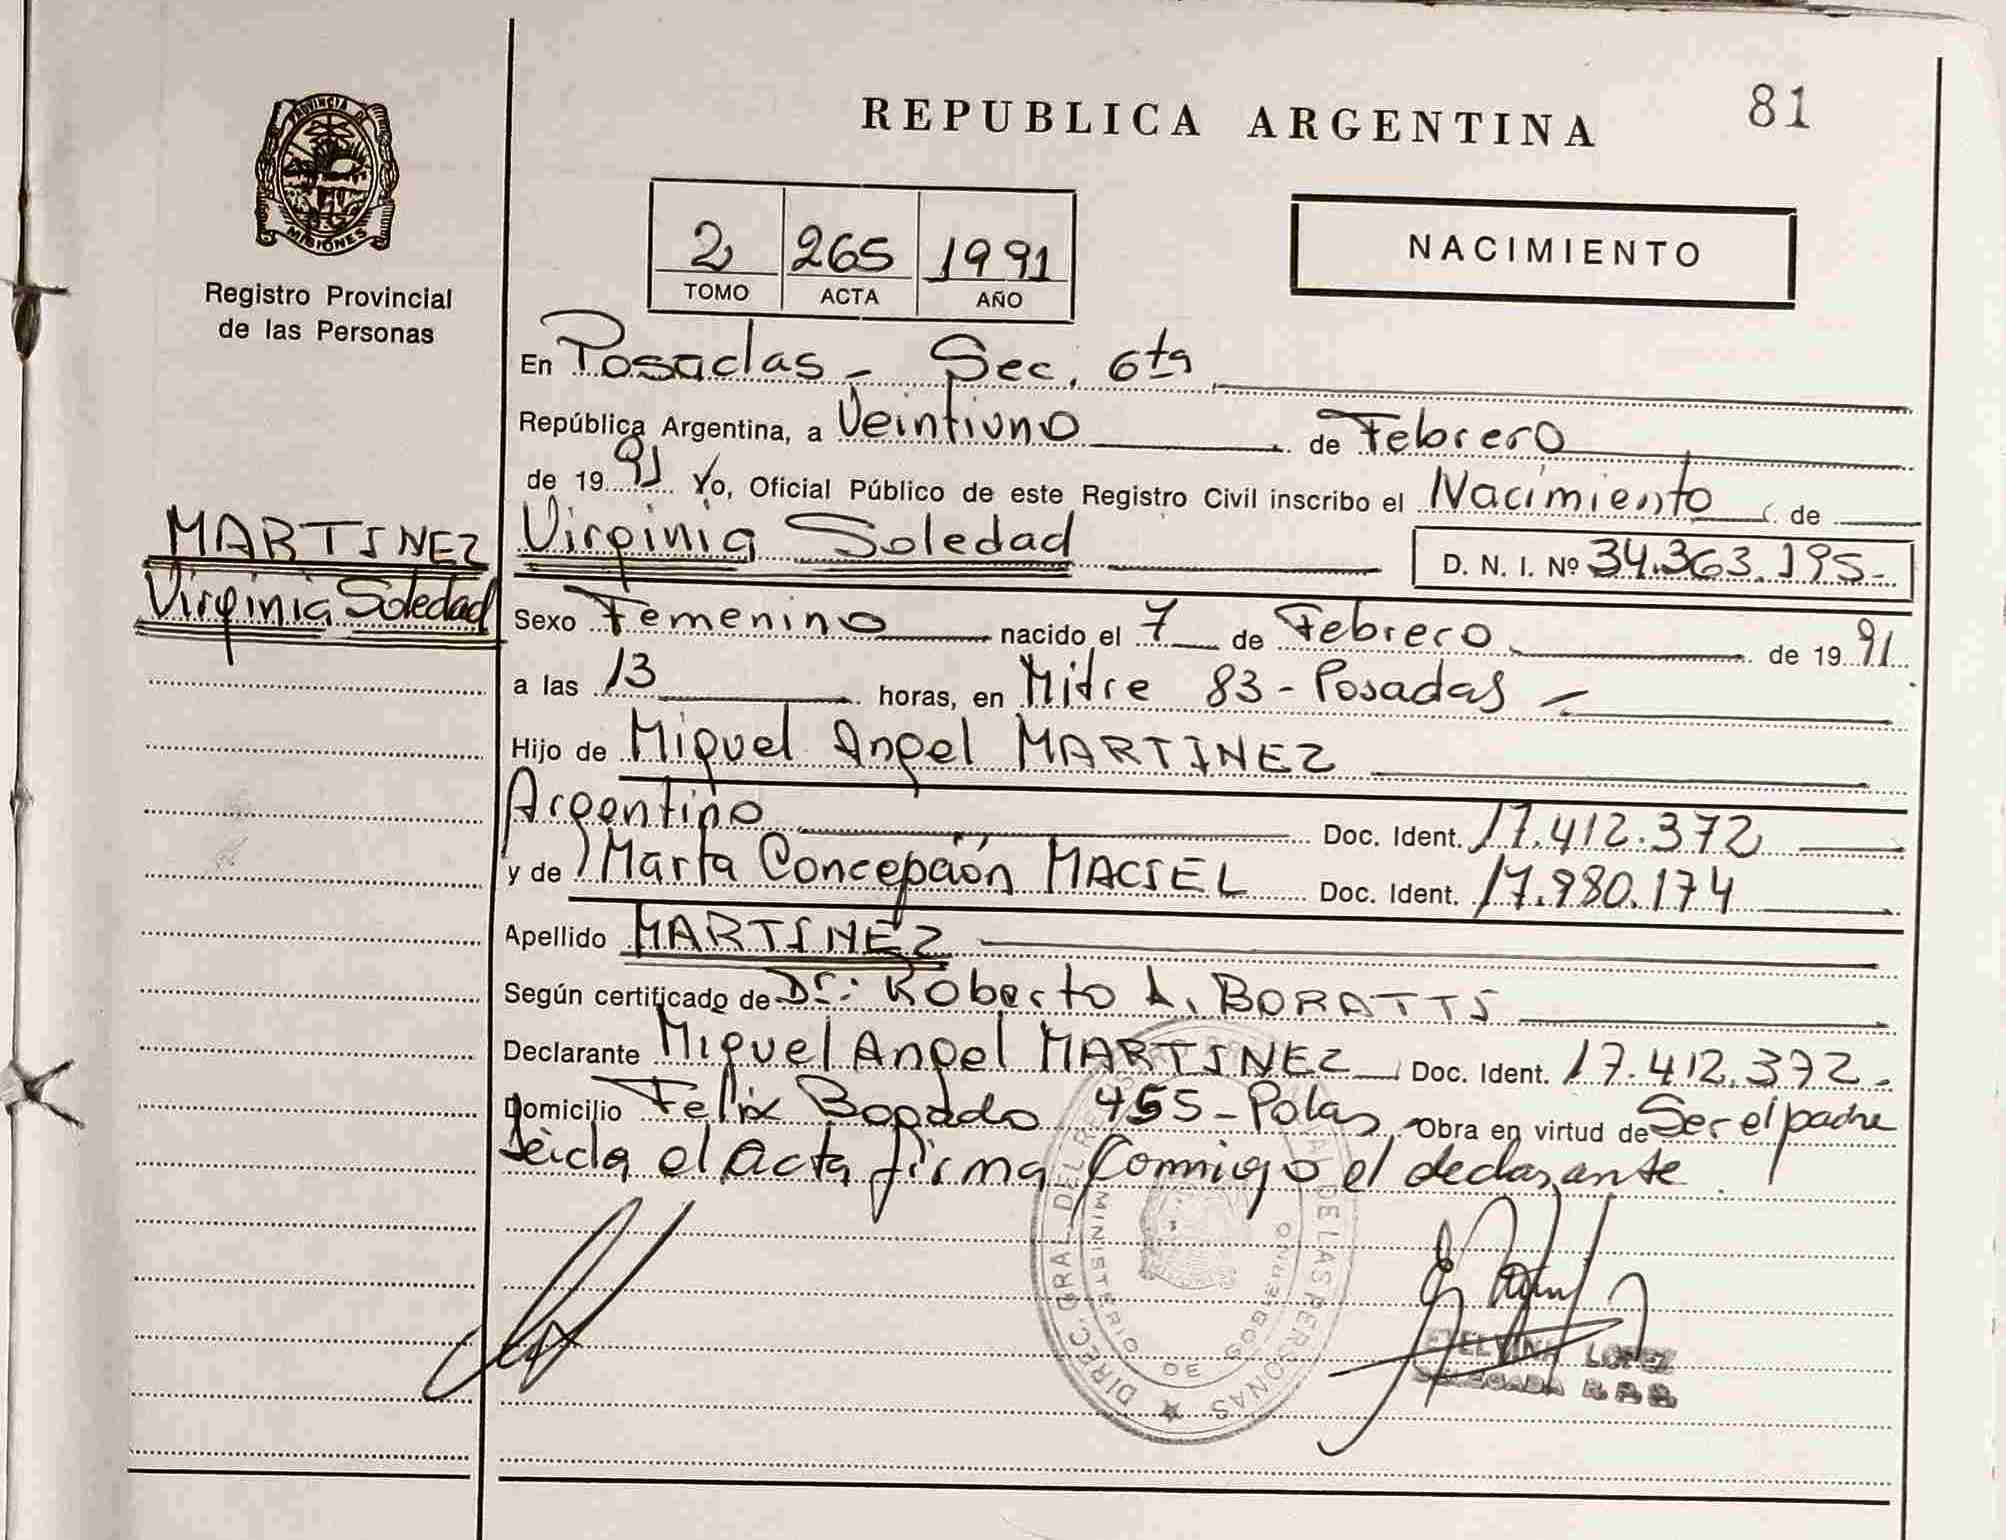 REPUBLICA ARGENTINA
81
PROVINCIA DE
MISIONES
Registro Provincial
de las Personas
2 265 1991
TOMO ACTA AÑO
NACIMIENTO
En Posadas - Sec. 6ta
República Argentina, a Veintiuno de Febrero
de 1991 Yo, Oficial Público de este Registro Civil inscribo el Nacimiento de
MARTINEZ
Virginia Soledad
Virginia Soledad D. N. I. Nº 34.363.195-
Sexo Femenino nacido el 7 de Febrero de 1991
a las 13 horas, en Mitre 83 - Posadas -
Hijo de Miguel Angel MARTINEZ
Argentino Doc. Ident. 17.412.372
y de Marta Concepción MACIEL Doc. Ident. 17.980.174
Apellido MARTINEZ
Según certificado de Dr: Roberto A. BORATTI
Declarante Miguel Angel MARTINEZ Doc. Ident. 17.412.372.
Domicilio Felix Bogado 455 - Pdas, Obra en virtud de Ser el padre
Leida el acta firma Conmigo el declarante.
DIREC. GRAL. DEL REG. DE LAS PERSONAS
MINISTERIO DE GOBIERNO
ELVINA LOPEZ
DELEGADA R.P.P.